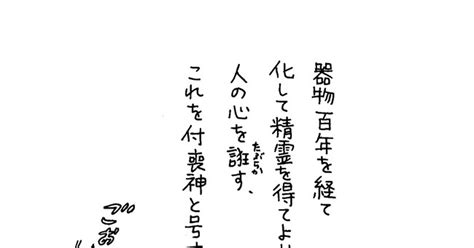 器物百年を経て
化して精霊を得てより
人の心を誑す、
たぶらか
これを付喪神と号す
ごお